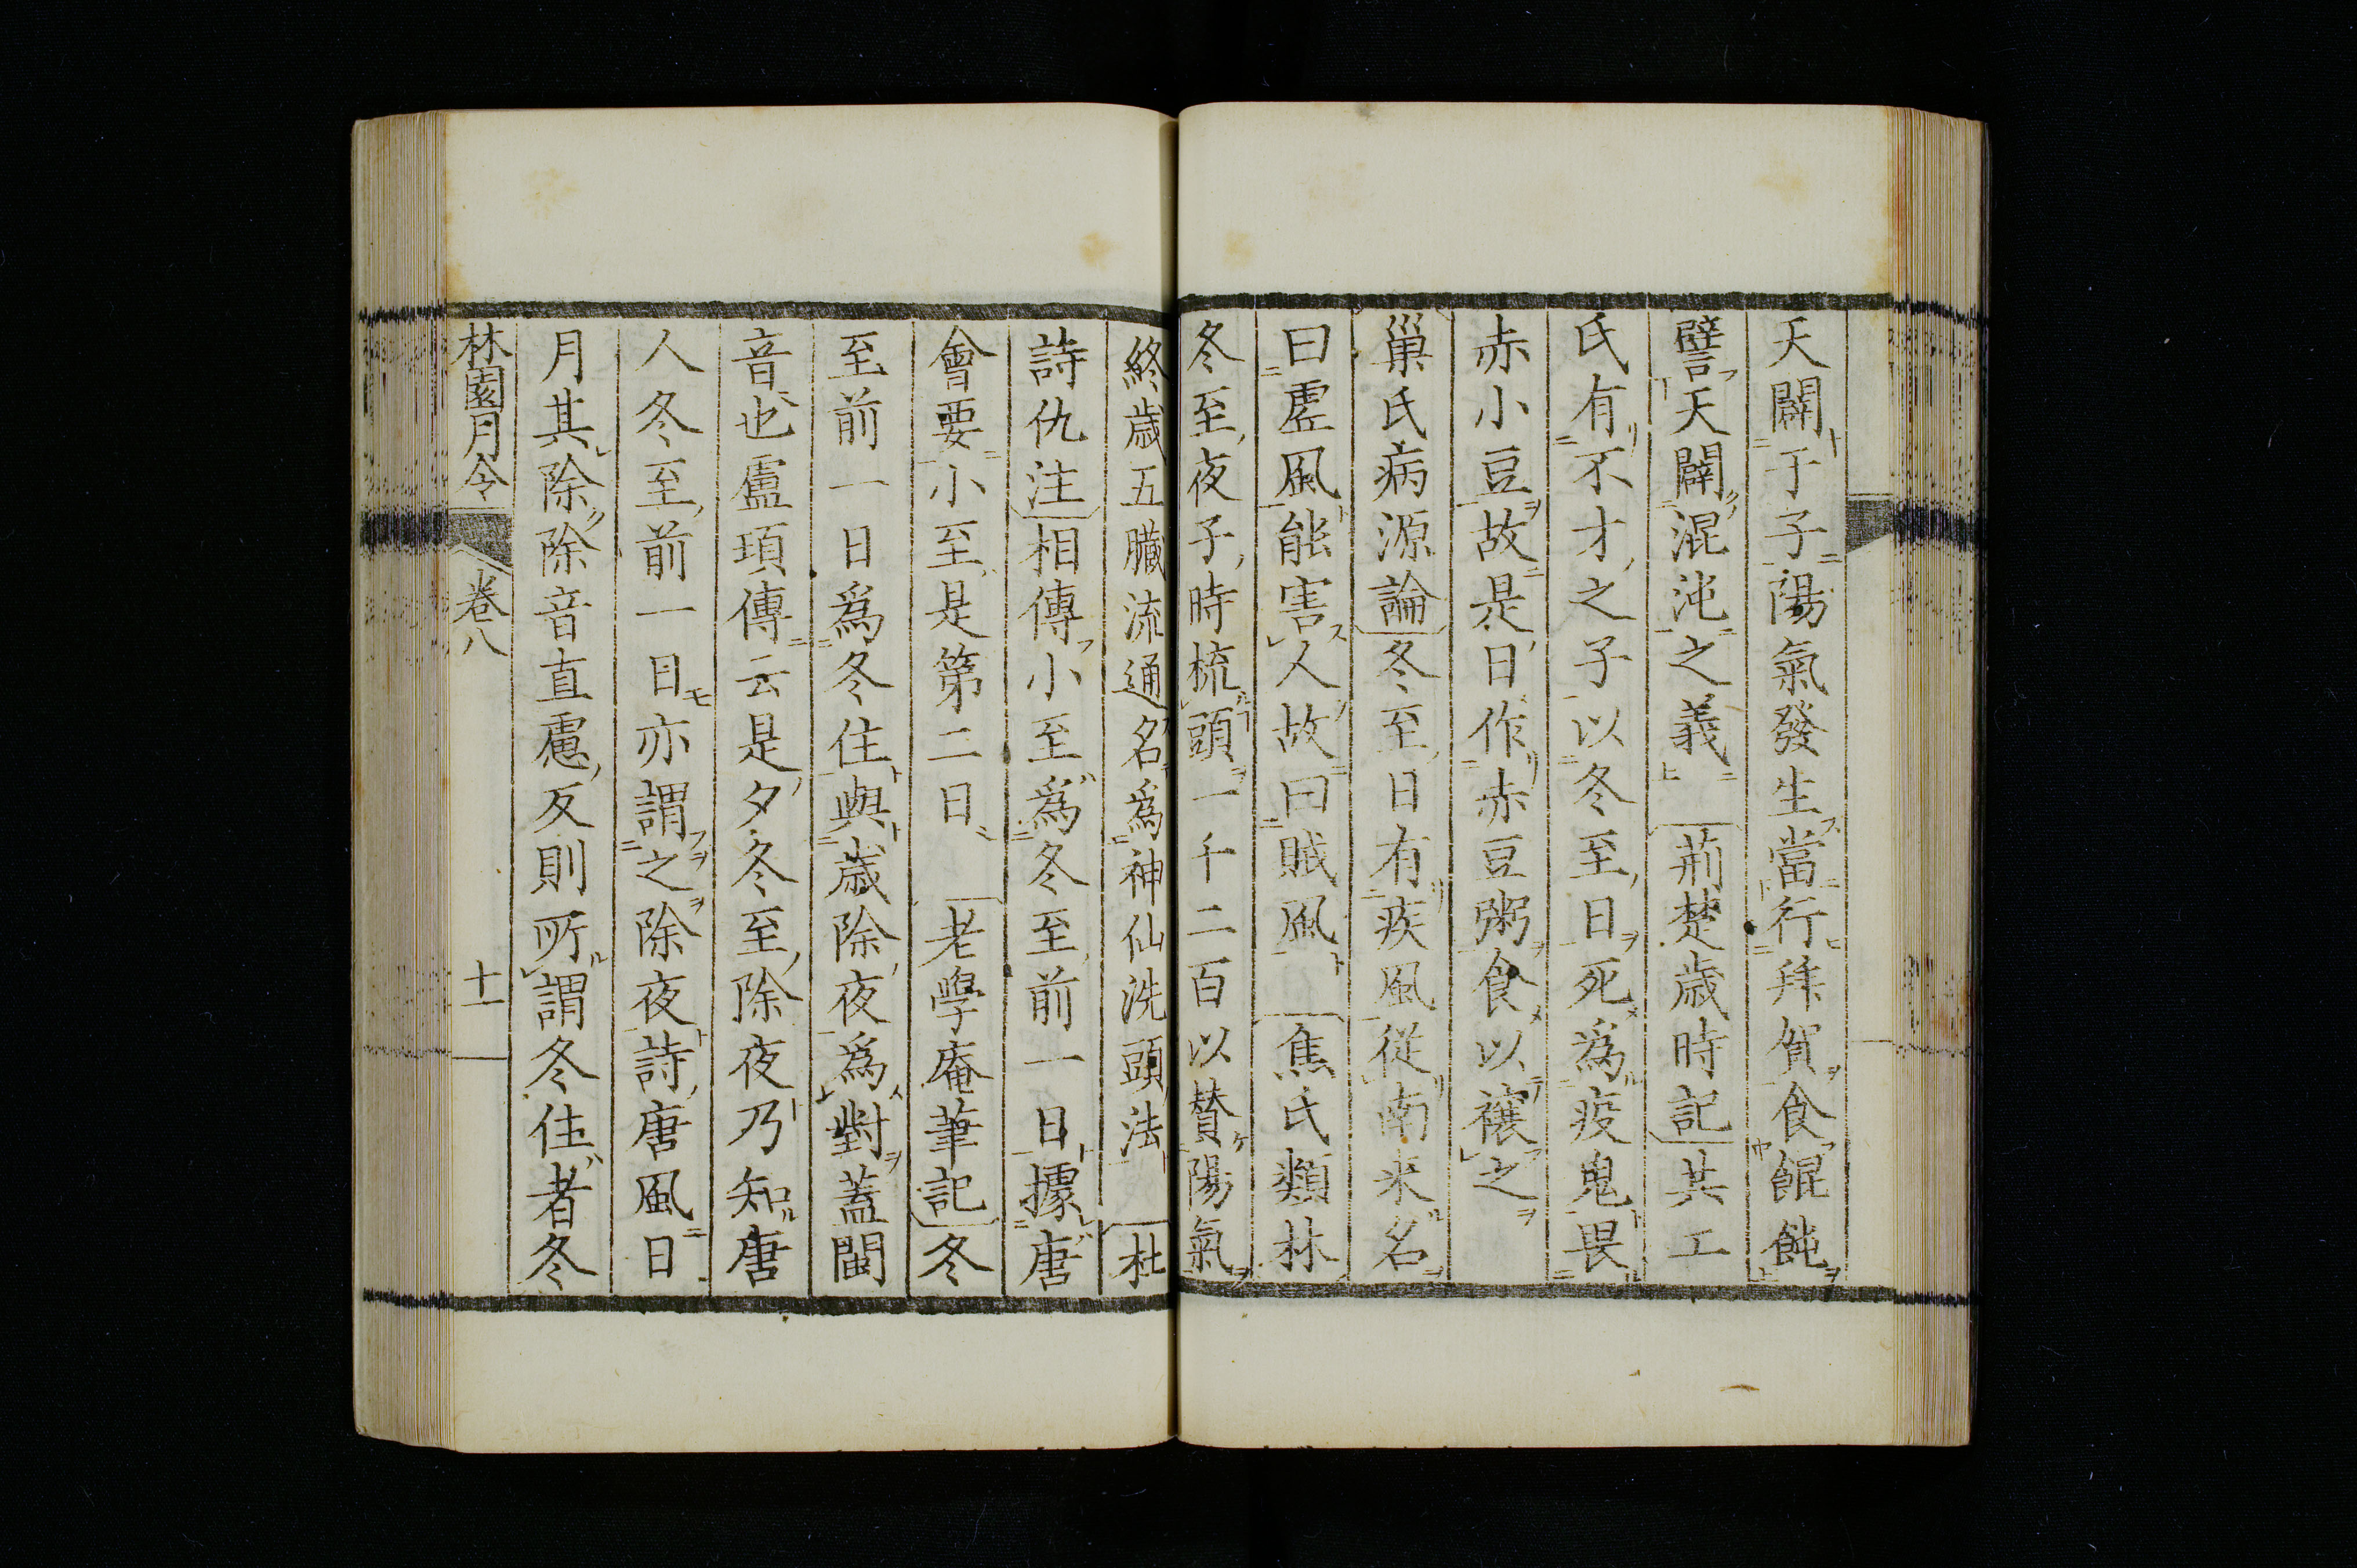 天闢于子陽氣發生當行拜賀食餛飩
譬天闢混沌之義　荊楚歳時記共工
氏有不才之子以冬至日死爲疫鬼畏
赤小豆故是日作赤豆粥食以禳之
巢氏病源論冬至日有疾風從南来名
曰虛風能害人故曰賊風　焦氏類林
冬至夜子時梳頭一千二百以賛陽氣
終歳五臟流通名爲神仙洗頭法　杜
詩仇注相傳小至爲冬至前一日據唐
會要小至是第二日　老學庵筆記冬
至前一日爲冬住與歳除夜爲對蓋閩
音也盧頊傳云是夕冬至除夜乃知唐
人冬至前一日亦謂之除夜詩唐風日
月其除除音直慮反則所謂冬住者冬
林園月令　卷八　十一